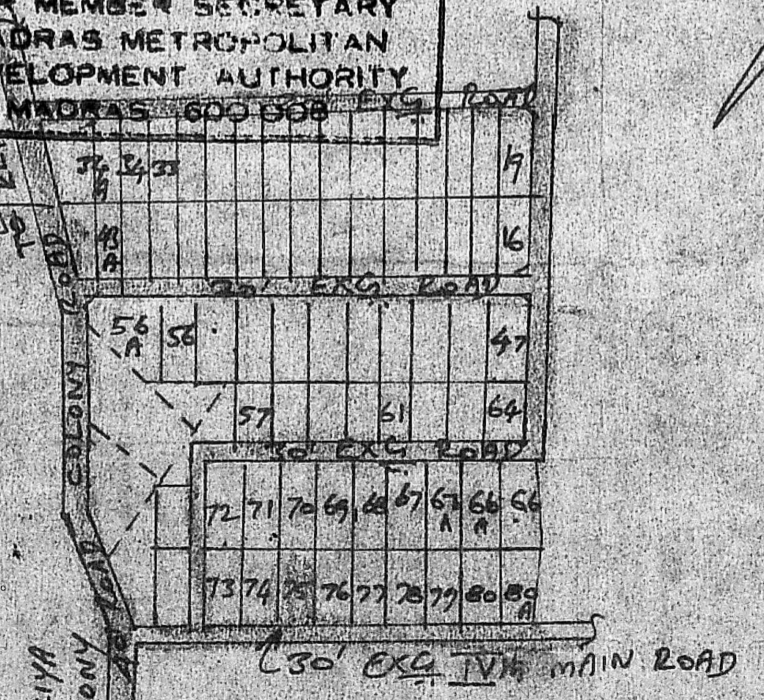 MEMBER SECRETARY
MADRAS METROPOLITAN
DEVELOPMENT AUTHORITY
MADRAS 600 008
EXG ROAD
34 33 19
43 A 16
ROAD
30' EXG ROAD
56 A 56 47
COLONY
57 61 64
30' EXG ROAD
72 71 70 69 68 67 67 A 66 A 66
ROAD
73 74 75 76 77 78 79 80 80 A
30' EXG IVth MAIN ROAD